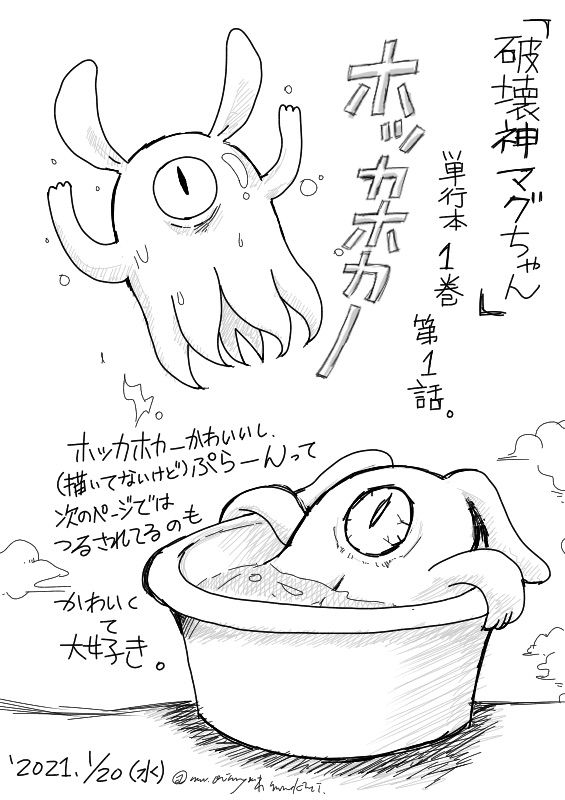 「破壊神マグちゃん」
単行本1巻
第1話。
ホッカホカー
ホッカホカーかわいいし、
(描いてないけど)ぷらーんって
次のページでは
つるされてるのも
かわいく
て
大好き。
'2021. 1/20 (水)